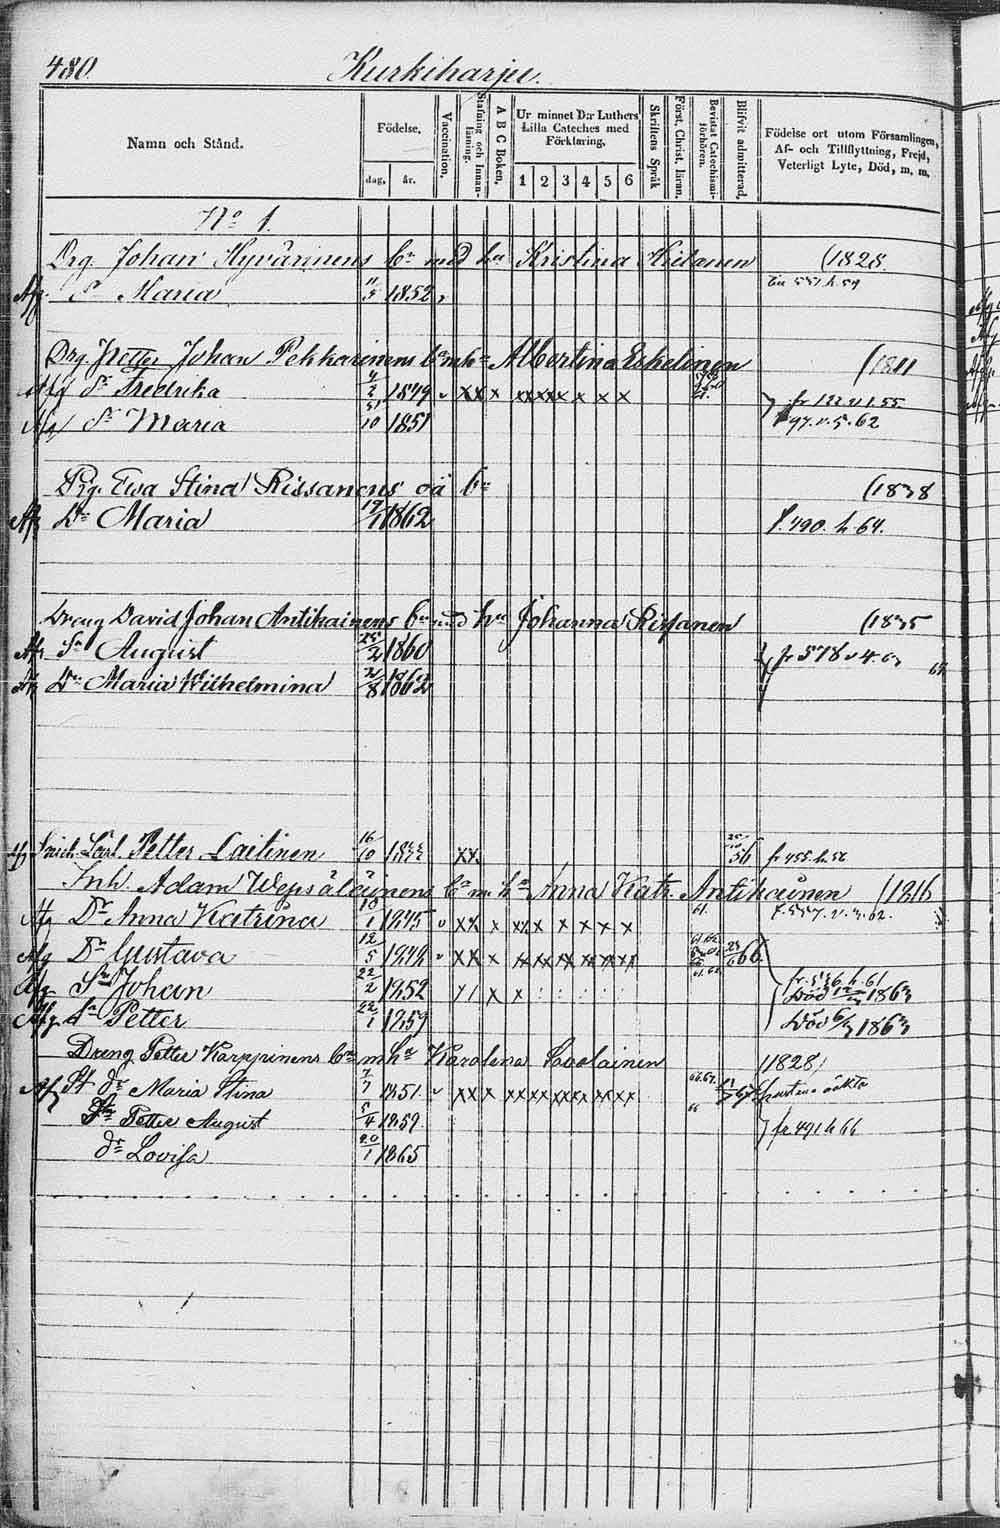 480. Kurkiharju.
Namn och Stånd.
Födelse,
dag, år.
Vaccination,
Stafning och Innanläsning.
A B C Boken,
Ur minnet D:r Luthers Lilla Cateches med Förklaring,
1 2 3 4 5 6
Skriftens Språk
Först. Christ. läran.
Bevistat Catechismiförhören.
Blifvit admitterad,
Födelse ort utom Församlingen, Af- och Tillflyttning, Frejd, Veterligt Lyte, Död, m. m.
No 1.
Drg. Johan Hyvärinens bn med hu Kristina Hietanen (1828.
Afg. Sn Maria 11/5 1852,
Drg. Petter Johan Pekkarinens bn m hu Albertina Eskelinen (1811
Afg dr Fredrika 4/2 1849 xx x xx xx x x x x
fr 122 v 1.55.
Afg dr Maria 31/10 1851 97. v. 5. 62
Pig. Ewa Stina Rissanens oä bn (1838
Afg Dr Maria 19/1 1862 f. 490. h 64.
Dreng David Johan Antikainens bn med hu Johanna Rissanen (1835
Afg Sn August 25/2 1860 fr 578 v 4.
Afg Dr Maria Wilhelmina 21/8 1862
Afg Carl Petter Laitinen 16/10 xx 56 fr 455. h. 56
Inh. Adam Wepsäläinens bn m hu Anna Katr. Antikainen (1816
Afg Dr Anna Katrina 10/1 1845 xx x xx x x x x x 61. f. 557. v. 62.
Afg Dr Gustava 12/5 1848 xx x xx xx xx xx xx xx 66.
Afg Sn Johan 22/2 1852 x x fr. 536. h. 61
Död 1863
Afg Sn Petter 22/1 1859 Död 6/3 1863
Dreng Petter Karppinens bn m hu Karolina Savolainen (1828)
Afg St dr Maria Stina 7/7 1851. xx x xx xx xx xx xx xx 66.67. 67
Sn Petter August 5/4 1859. 66 fr 491 h 66
dr Lovisa 20/1 1865